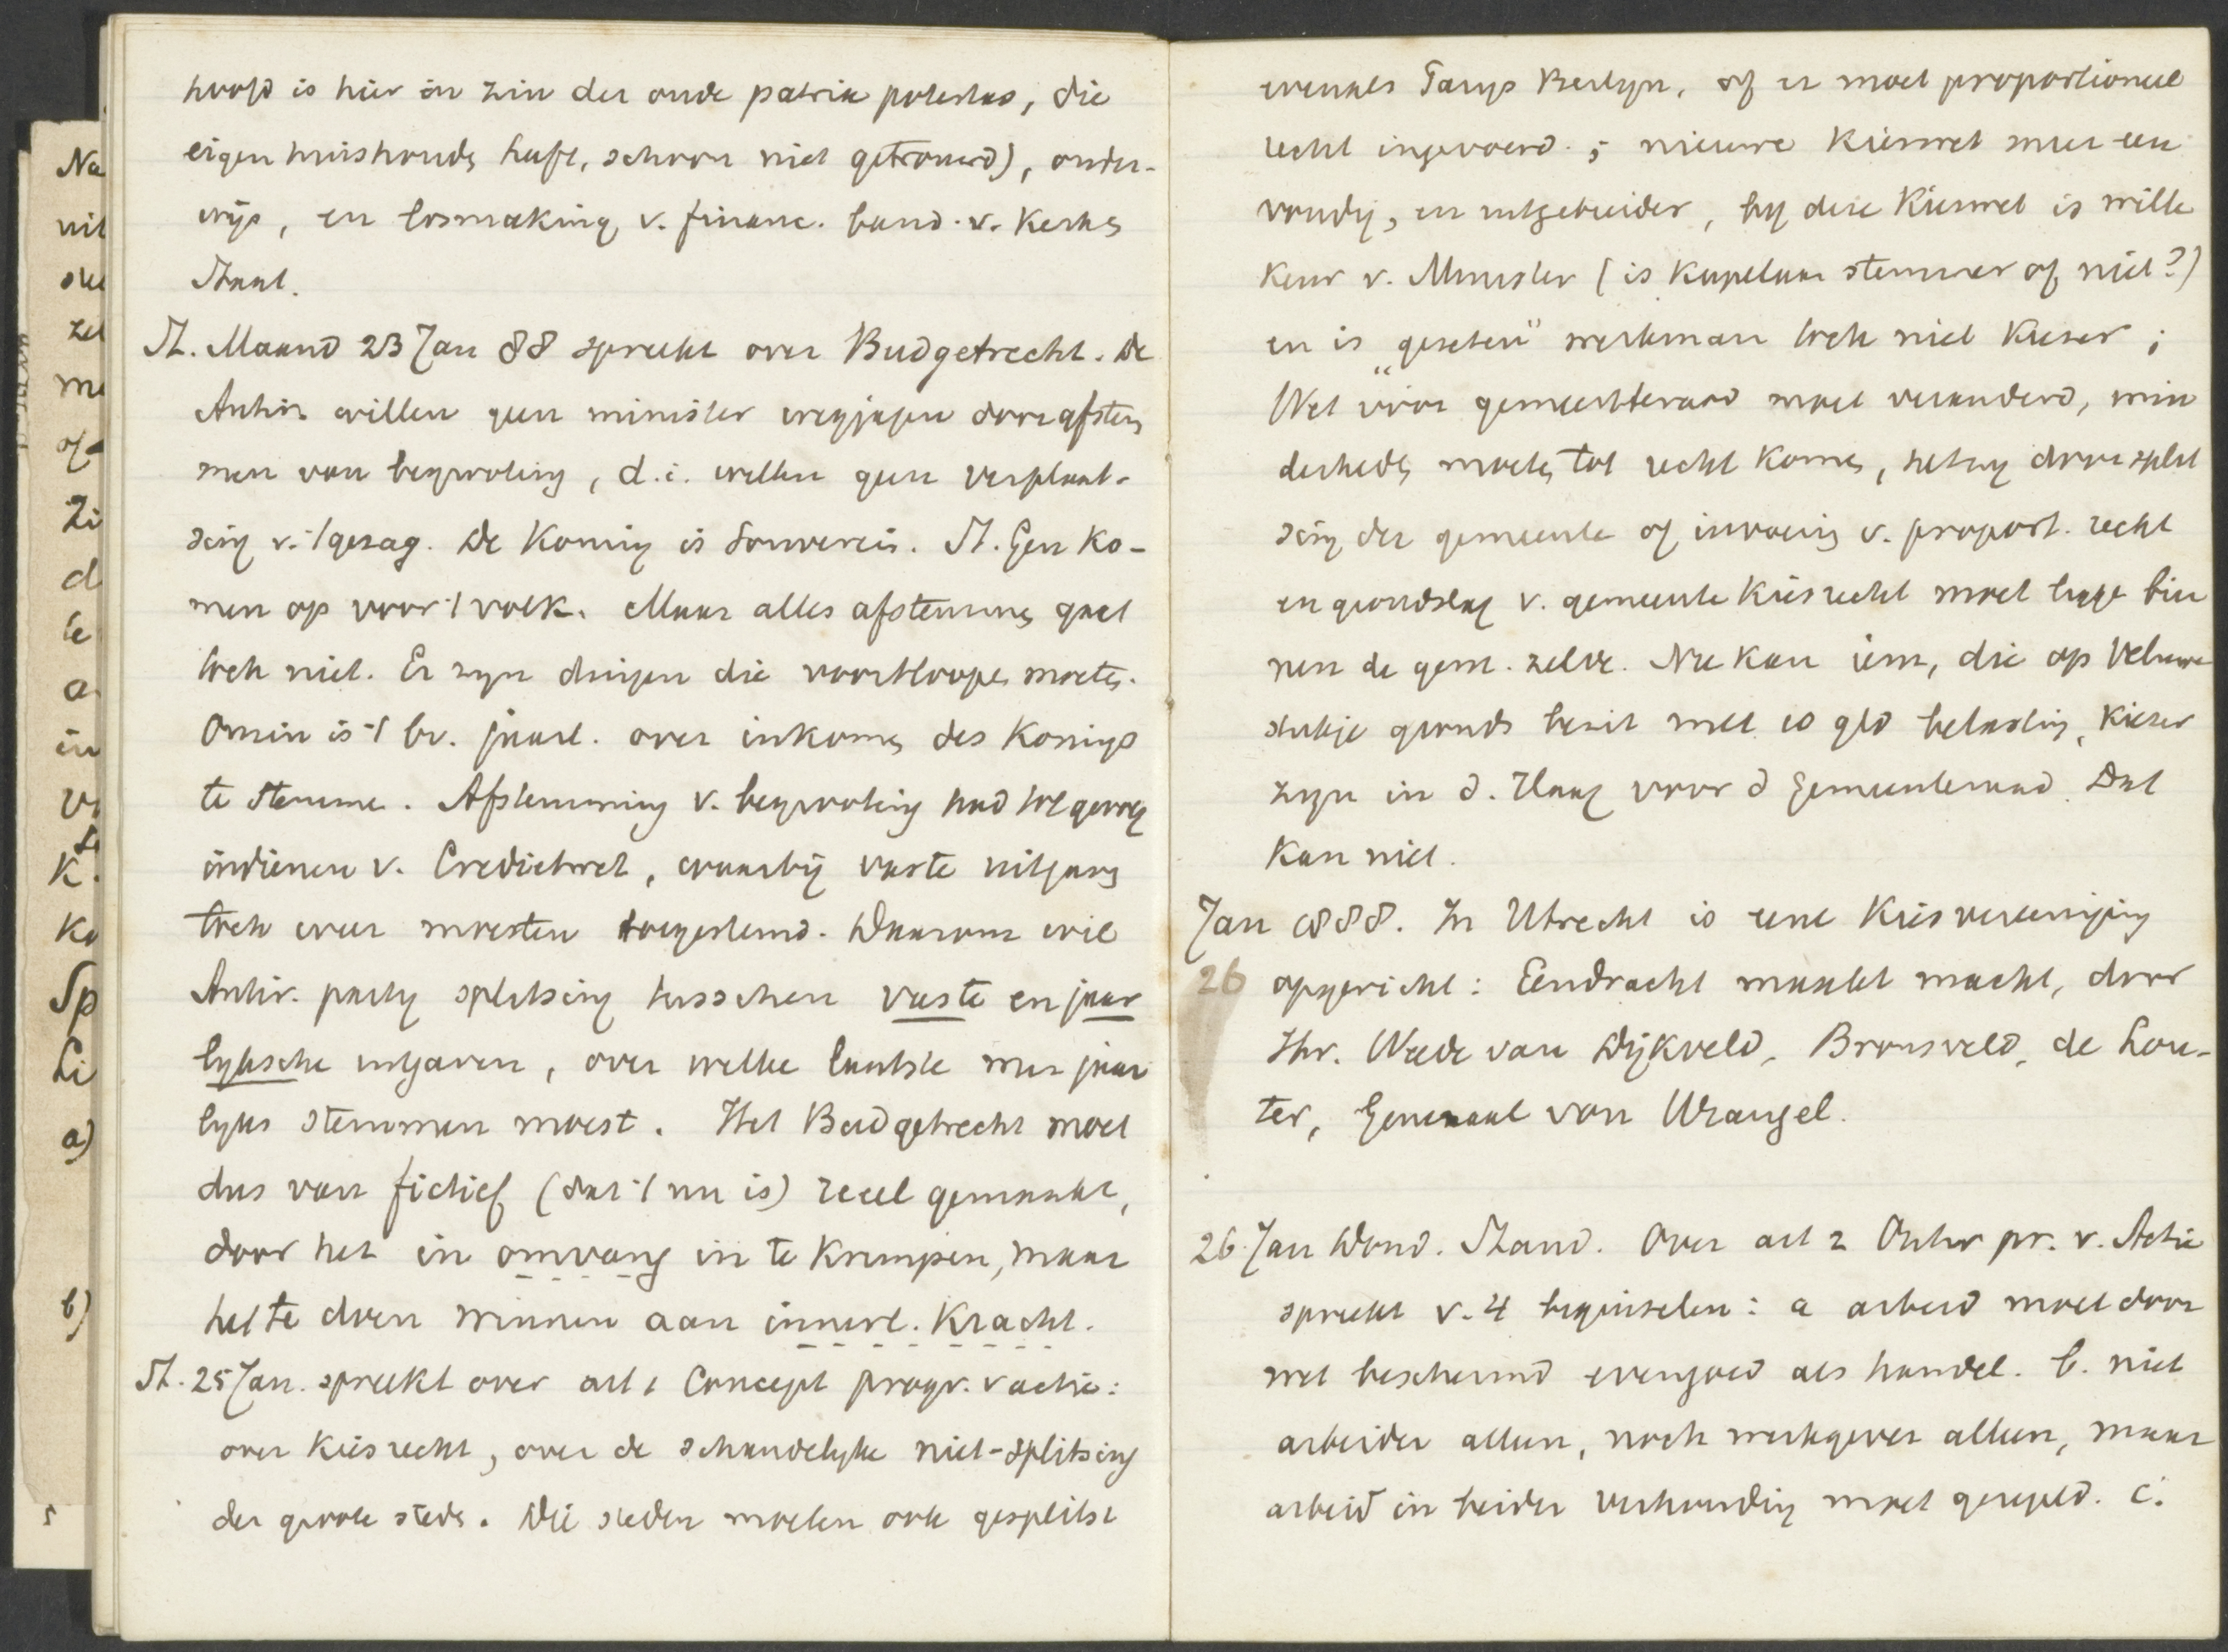 hoofd is hier in zin der oude patria potestas, die
eigen huishoude heeft, schoon niet getrouwd), onder-
wijs, en losmaking v. financ. band v. Kerk &
Staat.
St. Maand 23 Jan 88 spreekt over Budgetrecht. De
Antir. willen geen minister wegjagen door afstem
men van begrooting, d.i. willen geen verplaat-
sing v. 't gezag. De Koning is Souverein. St. Gen ko-
men op voor 't volk. Maar alles afstemmen gaat
toch niet. Er zyn dingen die voortloopen moeten.
Onzin is 't bv. jaarl. over inkomen des Konings
te stemmen. Afstemming v. begrooting had tot gevolg
indienen v. Credietwet, waarbij vaste uitgaven
toch weer moesten toegestemd. Daarom wil
Antir. party splitsing tusschen vaste en jaar
lyksche uitgaven, over welke laatste men jaar
lyks stemmen moest. Het Budgetrecht moet
dus van fictief (dat 't nu is) reeel gemaakt,
door het in omvang in te krimpen, maar
het te doen winnen aan innerl. Kracht.
St. 25 Jan. spreekt over art 1 Concept progr. v actie:
over kiesrecht, over de schandelyke niet-splitsing
der groote steden. Die steden moeten ook gesplitst
evenals Parys Berlyn, of er moet proportioneel
recht ingevoerd; nieuwe Kieswet meer een
voudig, en uitgebreider, by deze Kieswet is wille
keur v. Minister (is Kapelaan stemmer of niet?)
en is "gezeten" werkman toch niet Kiezer;
Wet vóór gemeenteraad moet veranderd, min
derheden moeten tot recht komen, hetzy door split
sing der gemeente of invoering v. proport. recht
en grondslag v. gemeente kiesrecht moet liggen bin
nen de gem. zelve. Nu kan iem, die op Veluwe
stukje gronds bezit met 10 gld belasting, kiezer
zyn in d. Haag voor d Gemeenteraad. Dat
kan niet.
Jan 1888. In Utrecht is eene Kiesvereeniging
26 opgericht: Eendracht maakt macht, door
Jhr. Weede van Dijkveld, Bronsveld, de Lou-
ter, Generaal von Wrangel.
26 Jan Dond. Stand. Over art 2 Ontw pr. v. Actie
spreekt v. 4 beginselen: a arbeid moet door
wet beschermd evengoed als handel. b. niet
arbeider alleen, noch werkgever alleen, maar
arbeid in beider verhouding moet geregeld. c.